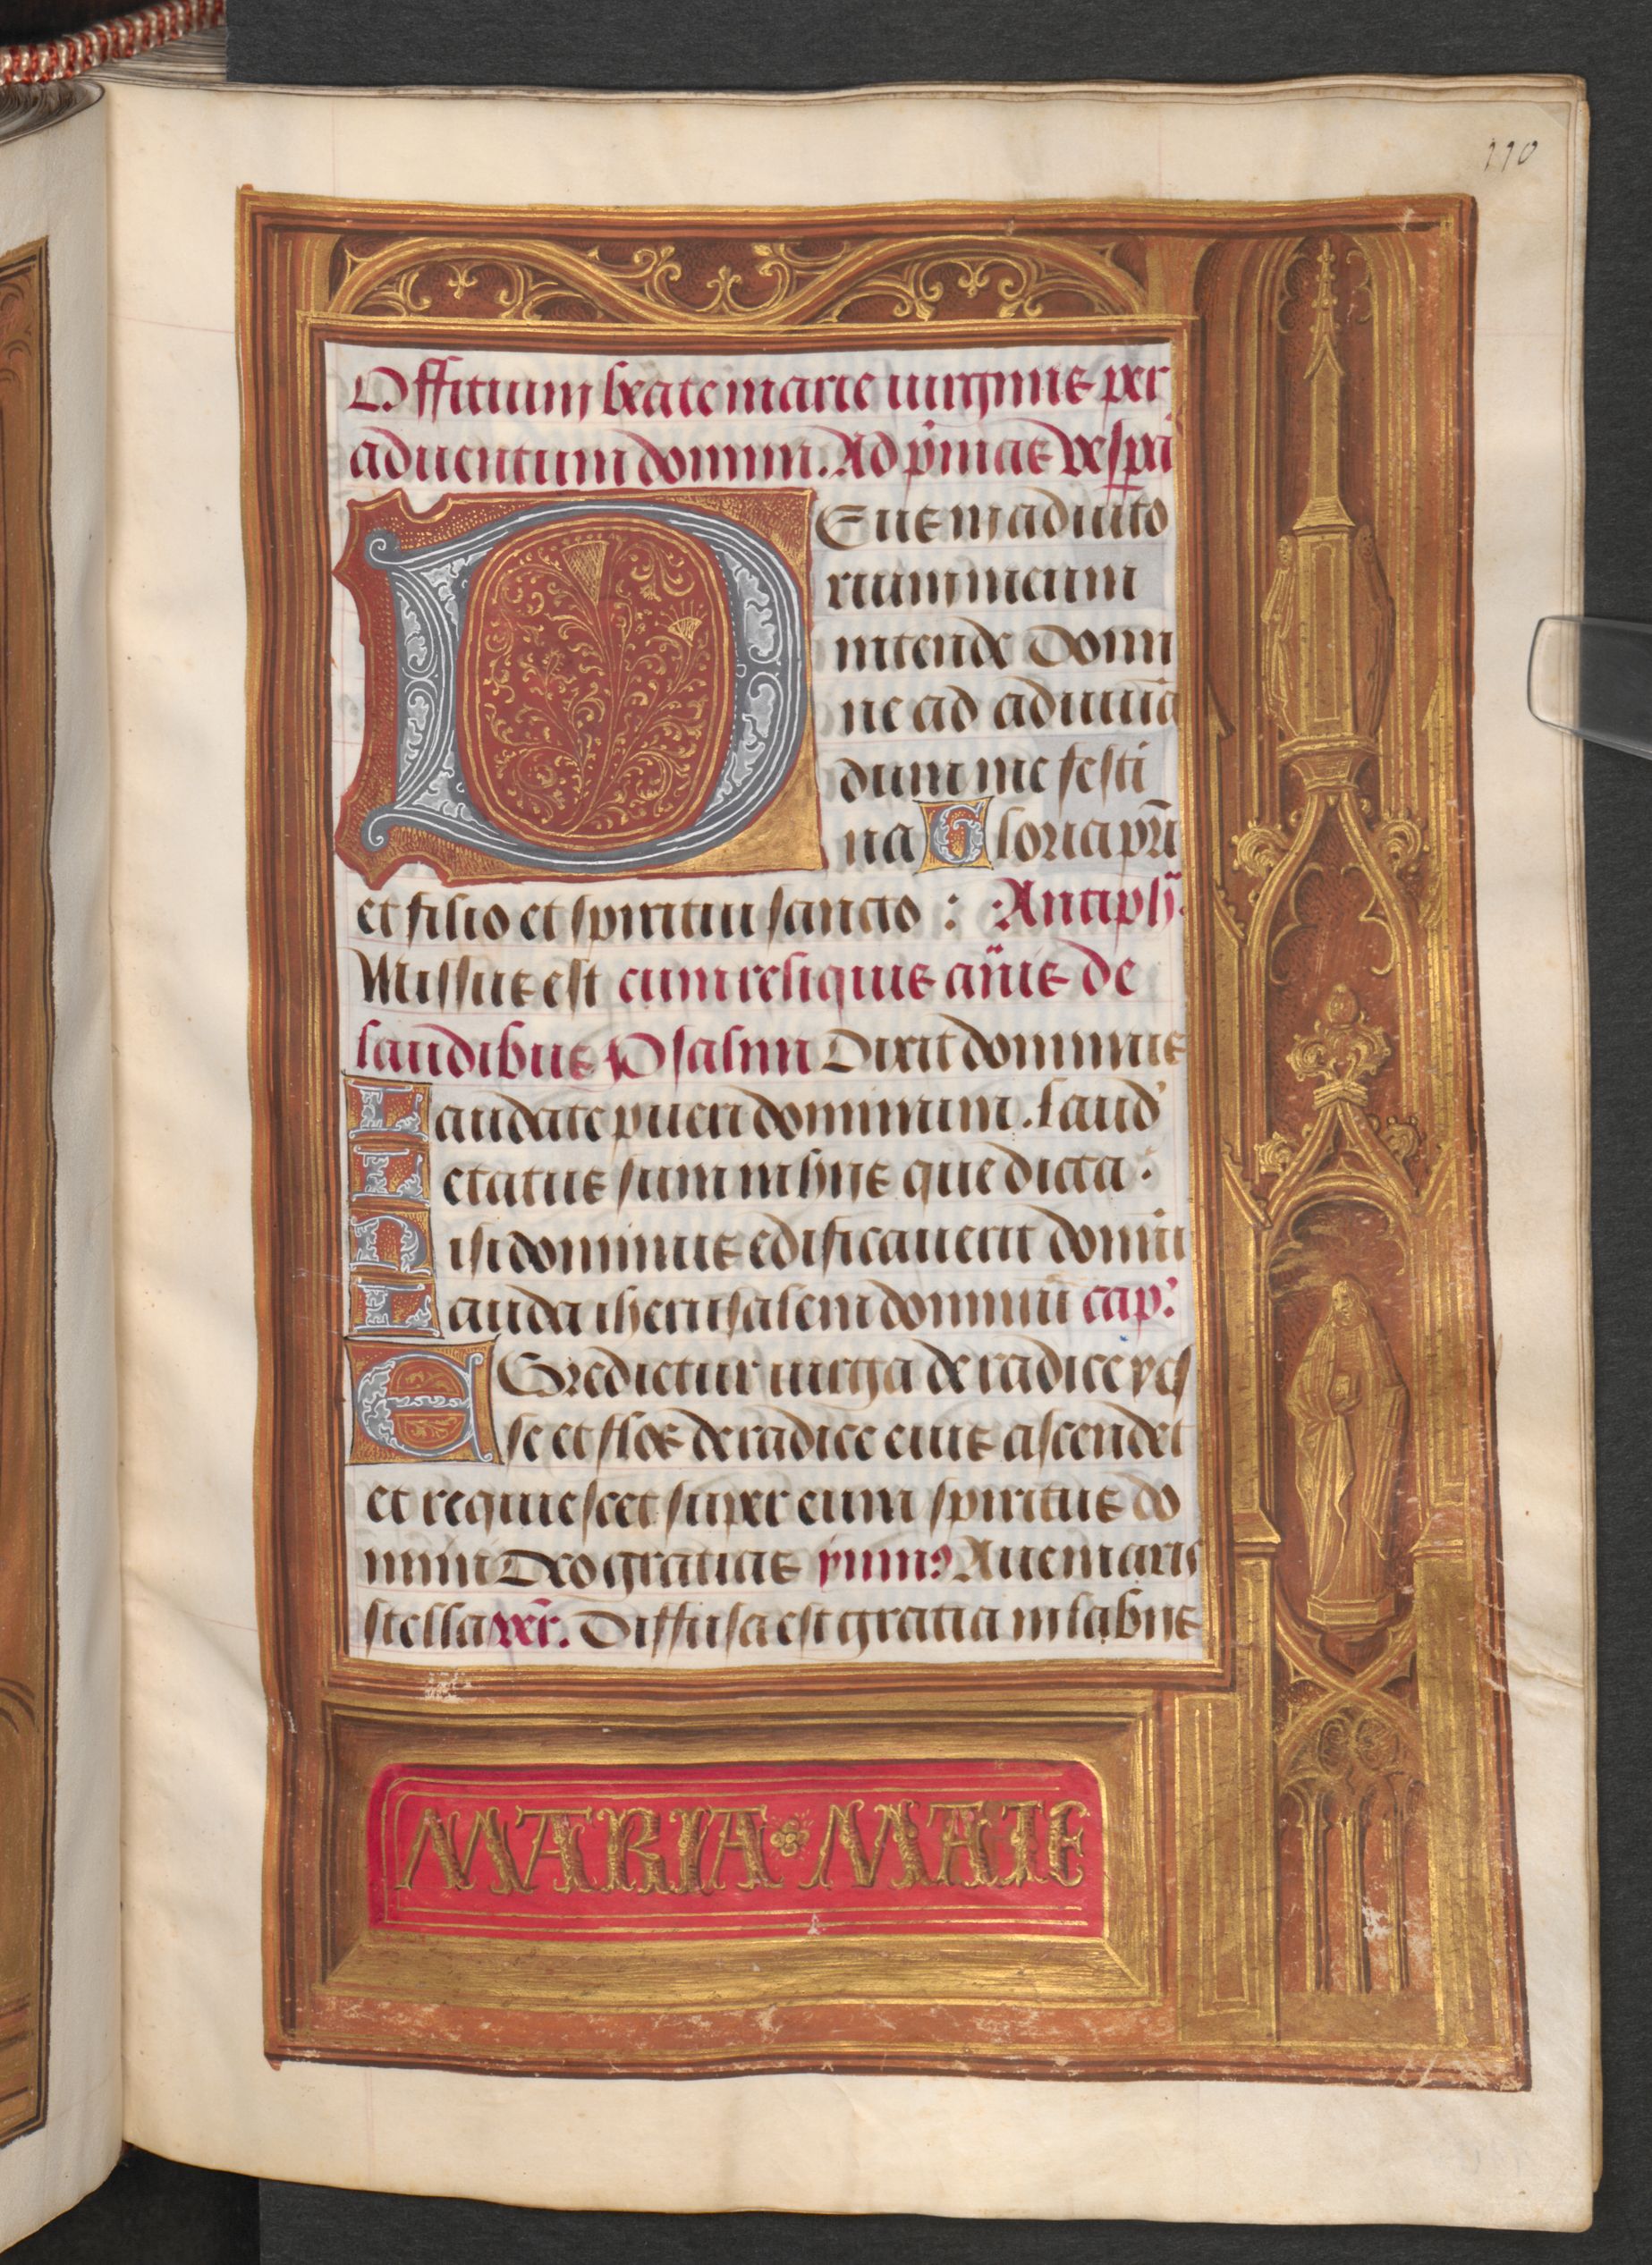 110
Offitium beate marie uirginis per
aduentum domini. Ad p̄mas vesp̄ai
DEus in adiuto
rium meum
intende Domi
ne ad adiuuā
dum me festi
na Gloria pr̄i
et filio et spiritui sancto : Antiph̄.
Missus est cum reliquis an̄is de
laudibus Psalmi Dixit dominus
Laudate pueri dominum. Laud'
Letatus sum in hiis que dicta :
Nisi dominus edificauerit domū
Lauda iherusalem dominū cap.
EGredietur uirga de radice yes
se et flos de radice eius ascendet
et requiescet super eum spiritus do
mini Deo gratias ymnꝰ Aue maris
stella ver̄. Diffusa est gratia in labiis
MARIA MATE